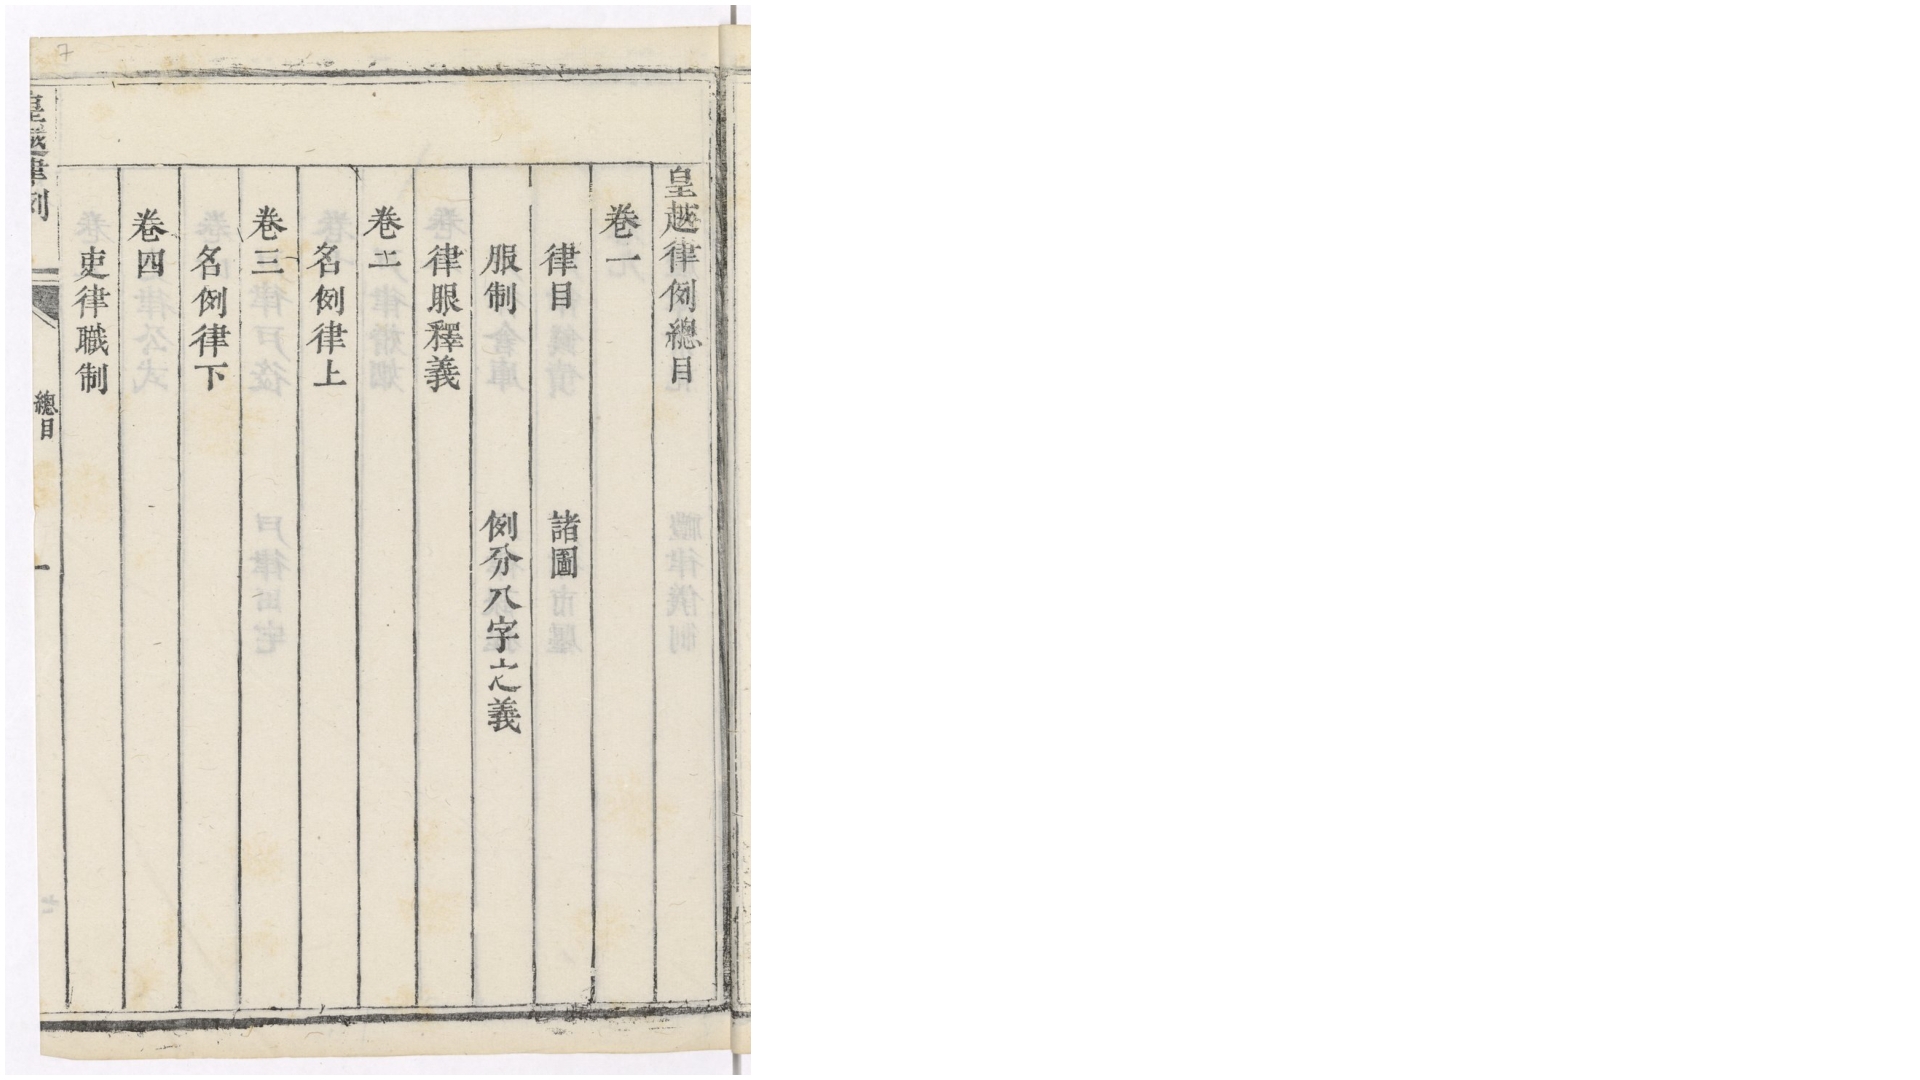 皇越律例總目
卷一
律目 諸圖
服制 例分八字之義
律眼釋義
卷二
名例律上
卷三
名例律下
卷四
吏律職制
皇越律例 總目 一
7